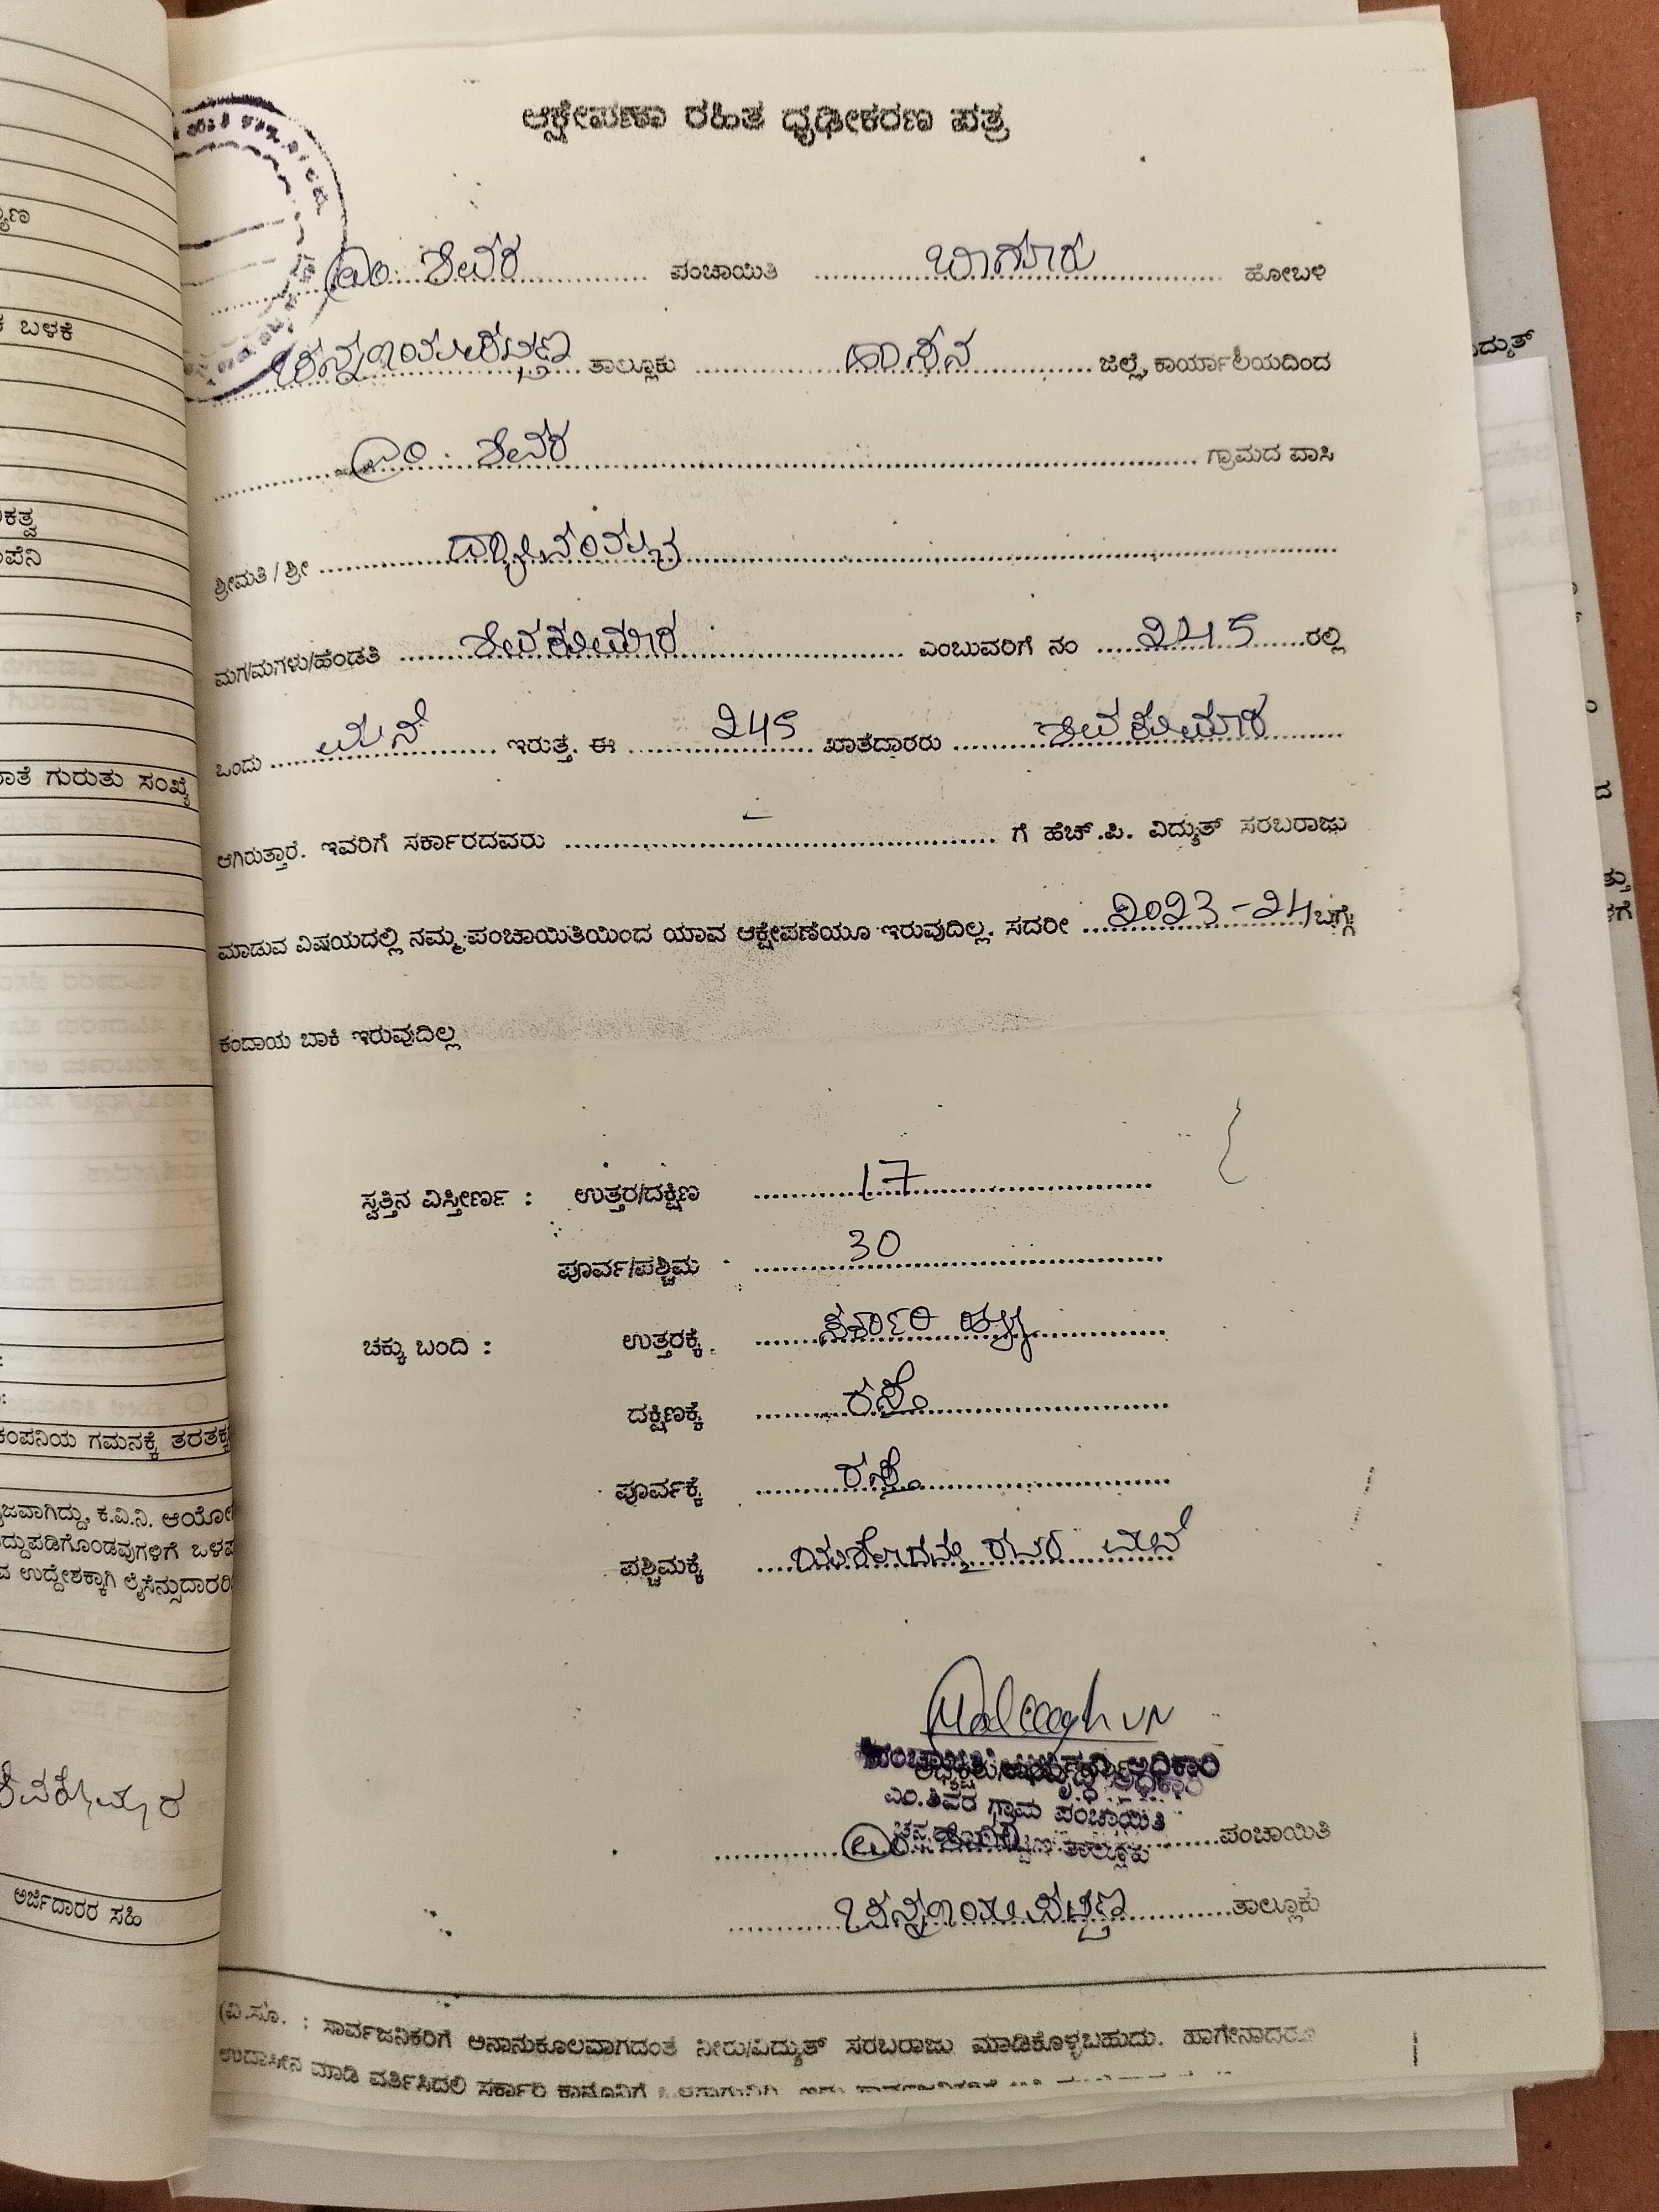 ಆಕ್ಷೇಪಣಾ ರಹಿತ ಧೃಢೀಕರಣ ಪತ್ರ
ಎಂ. ಶಿವರ ಪಂಚಾಯಿತಿ ಬಾಗೂರು ಹೋಬಳಿ
ಚನ್ನರಾಯಪಟ್ಟಣ ತಾಲ್ಲೂಕು ಹಾಸನ ಜಿಲ್ಲೆ, ಕಾರ್ಯಾಲಯದಿಂದ
ಎಂ. ಶಿವರ ಗ್ರಾಮದ ವಾಸಿ
ಶ್ರೀಮತಿ / ಶ್ರೀ
ಮಗ/ಮಗಳು/ಹೆಂಡತಿ ಶಿವಕುಮಾರ ಎಂಬುವರಿಗೆ ನಂ 245 ರಲ್ಲಿ
ಒಂದು ಮನೆ ಇರುತ್ತೆ. ಈ 245 ಖಾತೆದಾರರು ಶಿವಕುಮಾರ
ಆಗಿರುತ್ತಾರೆ. ಇವರಿಗೆ ಸರ್ಕಾರದವರು ಗೆ ಹೆಚ್.ಪಿ. ವಿದ್ಯುತ್ ಸರಬರಾಜು
ಮಾಡುವ ವಿಷಯದಲ್ಲಿ ನಮ್ಮ ಪಂಚಾಯಿತಿಯಿಂದ ಯಾವ ಆಕ್ಷೇಪಣೆಯೂ ಇರುವುದಿಲ್ಲ. ಸದರೀ 2023-24 ಬಗ್ಗೆ
ಕಂದಾಯ ಬಾಕಿ ಇರುವುದಿಲ್ಲ
ಸ್ವತ್ತಿನ ವಿಸ್ತೀರ್ಣ : ಉತ್ತರ/ದಕ್ಷಿಣ 17
ಪೂರ್ವ/ಪಶ್ಚಿಮ 30
ಚಕ್ಕು ಬಂದಿ : ಉತ್ತರಕ್ಕೆ ಸರ್ಕಾರಿ ಹಳ್ಳ
ದಕ್ಷಿಣಕ್ಕೆ ರಸ್ತೆ
ಪೂರ್ವಕ್ಕೆ ರಸ್ತೆ
ಪಶ್ಚಿಮಕ್ಕೆ ಯಶೋದಮ್ಮ ರವರ ಮನೆ
ಪಂಚಾಯಿತಿ ಅಭಿವೃದ್ಧಿ ಅಧಿಕಾರಿ
ಎಂ.ಶಿವರ ಗ್ರಾಮ ಪಂಚಾಯಿತಿ
ಎಂ. ಶಿವರ ಪಂಚಾಯಿತಿ
ಚನ್ನರಾಯಪಟ್ಟಣ ತಾಲ್ಲೂಕು
(ವಿ.ಸೂ. : ಸಾರ್ವಜನಿಕರಿಗೆ ಅನಾನುಕೂಲವಾಗದಂತೆ ನೀರು/ವಿದ್ಯುತ್ ಸರಬರಾಜು ಮಾಡಿಕೊಳ್ಳಬಹುದು. ಹಾಗೇನಾದರೂ
ಉದಾಸೀನ ಮಾಡಿ ವರ್ತಿಸಿದಲ್ಲಿ ಸರ್ಕಾರಿ ಕಾನೂನಿಗೆ
ಬಳಕೆ
ಗುರುತು ಸಂಖ್ಯೆ
ಗಮನಕ್ಕೆ
ಉದ್ದೇಶಕ್ಕಾಗಿ
ಶಿವಕುಮಾರ
ಅರ್ಜಿದಾರರ ಸಹಿ